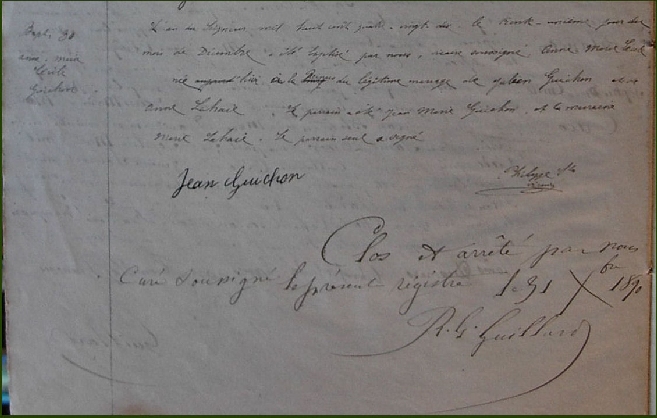 anne, marie
Cécile
Guichon
L'an du Seigneur mil huit cent quatre-vingt-dix le trente-unième jour du
mois de Décembre a été baptisé par nous curé soussigné anne Marie Cécile
née du légitime mariage de Jean Guichon et
anne Lehair Le parrain a été Jean Marie Guichon et la marraine
Marie Lehair. Le parrain seul a signé
Jean Guichon
Clos et arrêté par nous
Curé soussigné le présent registre le 31 Xbre 1890
R. G. Guillard